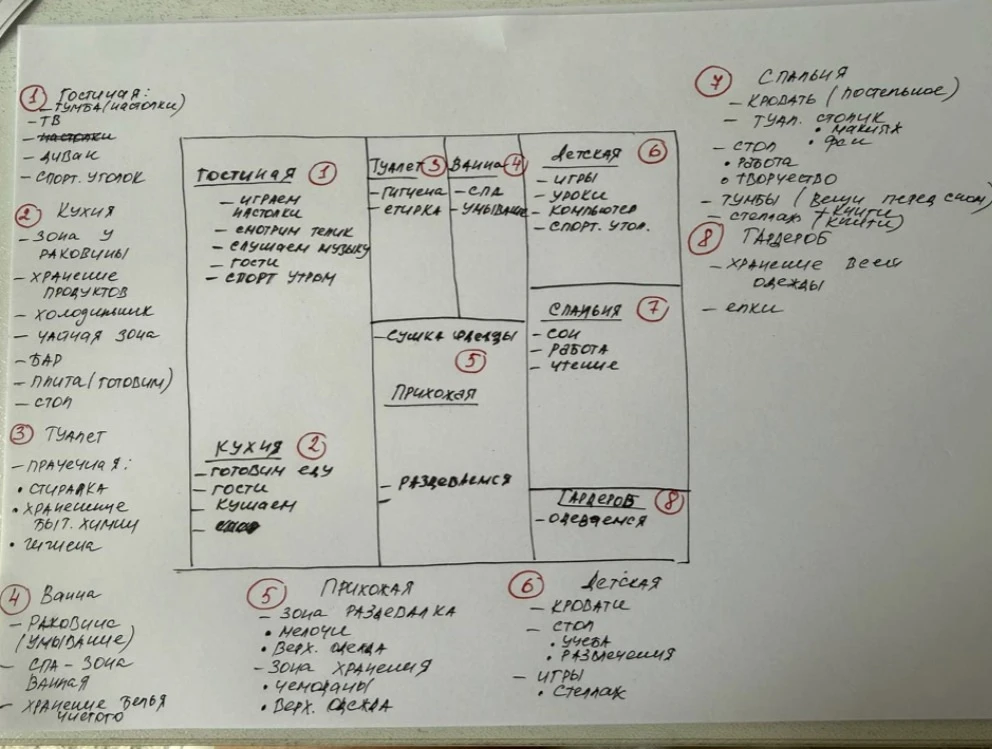 1 Гостиная:
- ТУМБА (НАСТОЛКИ)
- ТВ
- НАСТОЛКИ
- ДИВАН
- СПОРТ. УГОЛОК
2 КУХНЯ
- ЗОНА У
РАКОВИНЫ
- ХРАНЕНИЕ
ПРОДУКТОВ
- ХОЛОДИЛЬНИК
- ЧАЙНАЯ ЗОНА
- БАР
- ПЛИТА (ГОТОВИМ)
- СТОЛ
3 ТУАЛЕТ
- ПРАЧЕЧНАЯ:
• СТИРАЛКА
• ХРАНЕНИЕ
БЫТ. ХИМИИ
• ГИГИЕНА
4 Ванна
- РАКОВИНА
(УМЫВАНИЕ)
- СПА - ЗОНА
ВАННАЯ
- ХРАНЕНИЕ БЕЛЬЯ
ЧИСТОГО
ГОСТИНАЯ 1
- ИГРАЕМ
НАСТОЛКИ
- СМОТРИМ ТЕЛИК
- СЛУШАЕМ МУЗЫКУ
- ГОСТИ
- СПОРТ УТРОМ
КУХНЯ 2
- ГОТОВИМ ЕДУ
- ГОСТИ
- КУШАЕМ
ТУАЛЕТ 3
- ГИГИЕНА
- СТИРКА
ВАННА 4
- СПА
- УМЫВАНИЕ
- СУШКА ОДЕЖДЫ
5
ПРИХОЖАЯ
- РАЗДЕВАЕМСЯ
ДЕТСКАЯ 6
- ИГРЫ
- УРОКИ
- КОМПЬЮТЕР
- СПОРТ. УГОЛ.
СПАЛЬНЯ 7
- СОН
- РАБОТА
- ЧТЕНИЕ
ГАРДЕРОБ 8
- ОДЕВАЕМСЯ
5 ПРИХОЖАЯ
- ЗОНА РАЗДЕВАЛКА
• МЕЛОЧИ
• ВЕРХ. ОДЕЖДА
- ЗОНА ХРАНЕНИЯ
• ЧЕМОДАНЫ
• ВЕРХ. ОДЕЖДА
6 ДЕТСКАЯ
- КРОВАТИ
- СТОЛ
• УЧЕБА
• РАЗВЛЕЧЕНИЯ
- ИГРЫ
• СТЕЛЛАЖ
7 СПАЛЬНЯ
- КРОВАТЬ (ПОСТЕЛЬНОЕ)
- ТУАЛ. СТОЛИК
• МАКИЯЖ
• ФЕН
- СТОЛ
• РАБОТА
• ТВОРЧЕСТВО
- ТУМБЫ (ВЕЩИ ПЕРЕД СНОМ)
+ КНИГИ
- СТЕЛЛАЖ (КНИГИ)
8 ГАРДЕРОБ
- ХРАНЕНИЕ ВСЕЙ
ОДЕЖДЫ
- ЕЛКИ